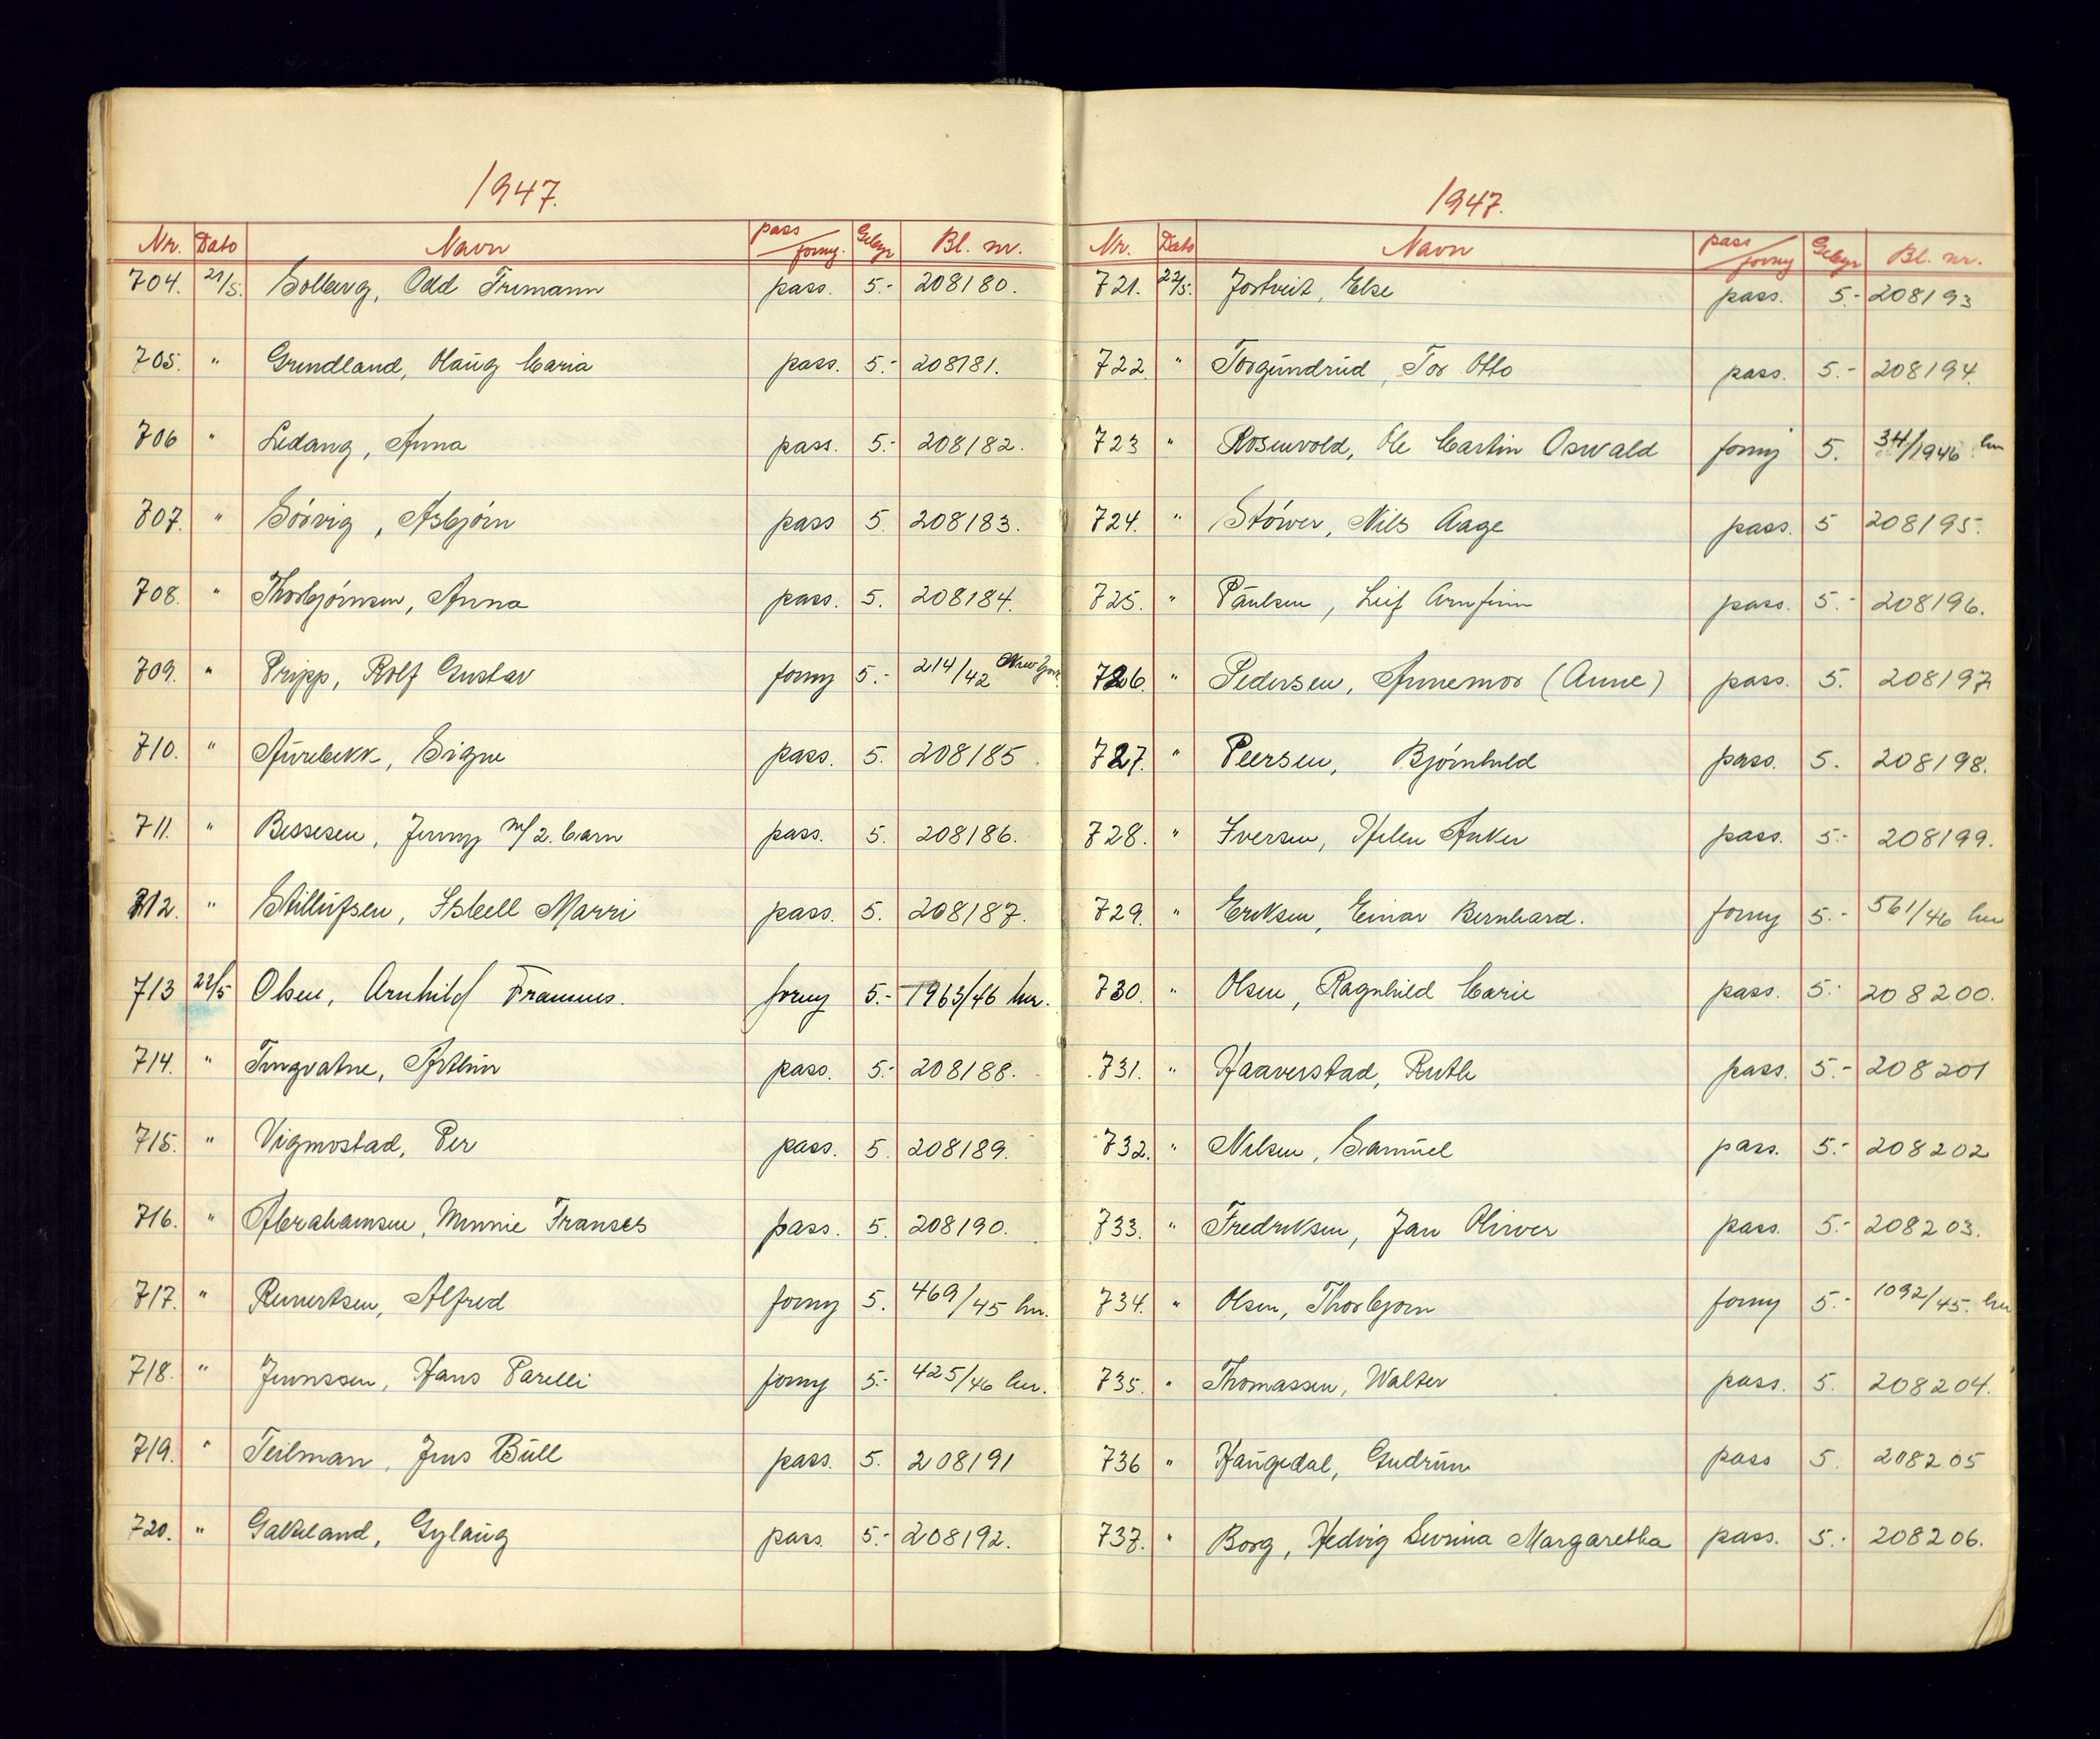 1947.
Nr. Dato Navn pass/forny. Gebyr Bl. nr.
704. 21/5. Solberg, Odd Tremann pass. 5.- 208180.
705. " Grundland, Olaug Maria pass. 5.- 208181.
706 " Ledang, Anna pass. 5.- 208182.
707. " Sörvig, Asbjörn pass 5. 208183.
708. " Thorbjörnsen, Anna pass. 5. 208184.
709. " Pripp, Rolf Gustav forny 5.- 214/42 New York
710. " Aurebekk, Signe pass. 5. 208185.
711. " Bessesen, Jenny m/2. barn pass. 5. 208186.
712. " Stillufsen, Isbell Marri pass. 5. 208187.
713 22/5 Olsen, Arnhild Framnes. forny 5.- 1963/46 her.
714. " Tingvatne, Arthur pass. 5.- 208188.
715. " Vigmostad, Per pass. 5. 208189.
716. " Abrahamsen, Minnie Franses pass. 5. 208190.
717. " Reinertsen, Alfred forny 5. 469/45 her.
718. " Jenssen, Hans Parelli forny 5.- 425/46 her.
719. " Teilman, Jens Bull pass. 5. 208191
720. " Gakkeland, Gylaug pass. 5.- 208192.
1947.
Nr. Dato Navn pass/forny Gebyr Bl. nr.
721. 22/5. Jortveit, Else pass. 5.- 208193
722. " Torgundrud, Tor Otto pass. 5.- 208194.
723 " Rosenvold, Ole Martin Oswald forny 5. 34/1946 her
724. " Stöwer, Nils Aage pass. 5 208195.
725. " Paulsen, Leif Arnfinn pass. 5.- 208196.
726. " Pedersen, Annemor (Anne) pass. 5. 208197
727. " Peersen, Bjørnhild pass. 5. 208198.
728. " Iversen, Helen Anker pass. 5.- 208199.
729. " Eriksen, Einar Bernhard. forny 5.- 561/46 her
730. " Olsen, Ragnhild Marie pass. 5.- 208200.
731. " Haaverstad, Ruth pass. 5.- 208201
732. " Nilsen, Samuel pass. 5.- 208202
733. " Fredriksen, Jan Oliver pass. 5.- 208203.
734. " Olsen, Thorbjorn forny 5.- 1092/45. her
735. " Thomassen, Walter pass. 5. 208204.
736 " Haugedal, Gudrun pass 5. 208205
737. " Borg, Hedvig Severina Margaretha pass. 5.- 208206.